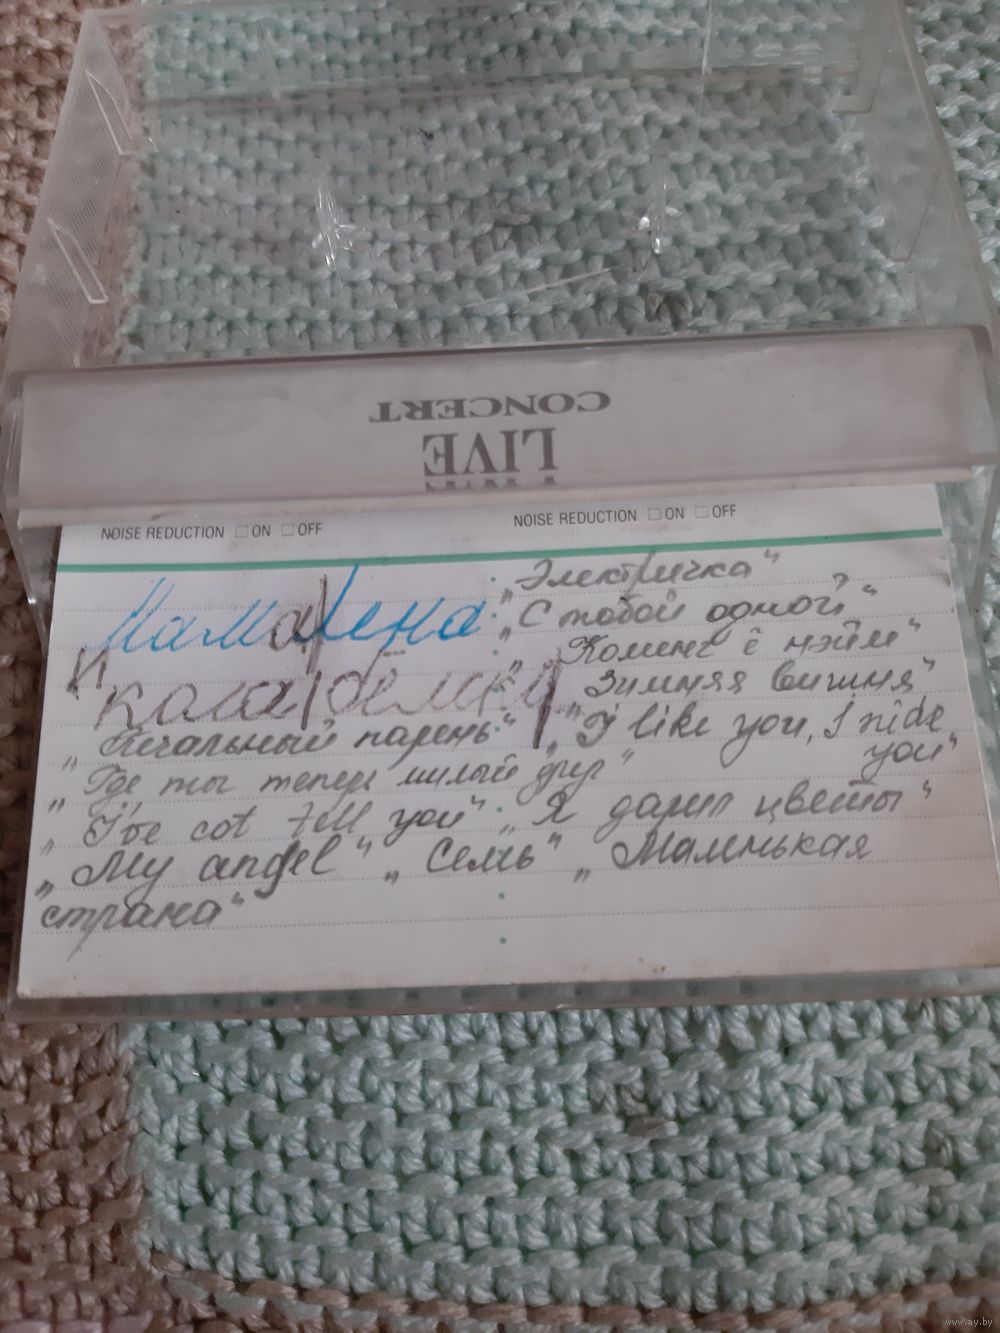 LIVE
CONCERT
NOISE REDUCTION ON OFF NOISE REDUCTION ON OFF
Мама Лена „Электричка“
и „С тобой одной“
кала „Коминг ё нэйм“
„Зимняя вишня“
„Печальный парень“ „I like you, I nide
you“
„Где ты тепер милый друг“
„I'be cot tell you“ „Я дарил цветы“
„My angel“ „Семь“ „Маленькая
страна“
www.ay.by